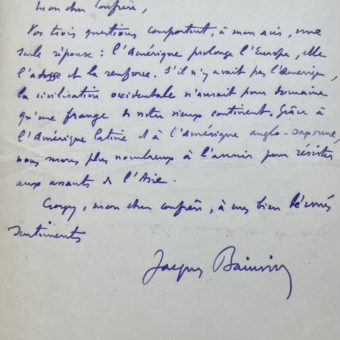 mon cher Confrère,
Vos trois questions comportent, à mon avis, une
seule réponse : l'Amérique prolonge l'Europe, elle
l'adosse et la renforce. S'il n'y avait pas l'Amérique,
la civilisation occidentale n'aurait pour domaine
qu'une frange de notre vieux continent. Grâce à
l'Amérique latine et à l'Amérique anglo-saxonne,
nous sommes plus nombreux à l'avenir pour résister
aux assauts de l'Asie.
Croyez, mon cher confrère, à mes bien dévoués
sentiments
Jacques Bainville